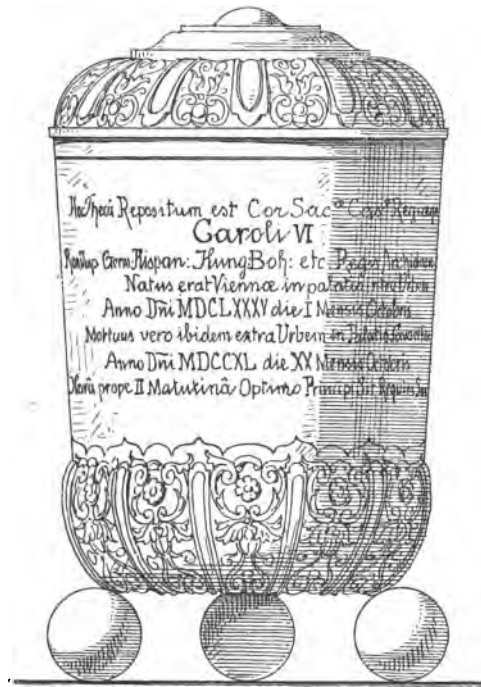 Hac Thecâ Repositum est Cor Sac
Caroli VI
Rom Imp Germ: Hispan: Hung Boh: etc Regis Archiducis
Natus erat Viennæ in palatio intra Urbem
Anno Dñi MDCLXXXV die I Mensis Octobris
Mortuus vero ibidem extra Urbem in Palatio
Anno Dñi MDCCXL die XX Mensis Octobris
Horâ prope II Matutinâ Optimo Principi Sit Requies